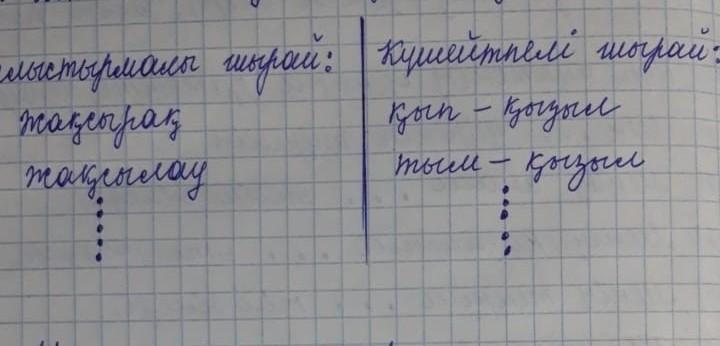 лыстырмалы шырай:
жақсырақ
жақсылау
Күшейтпелі шырай:
қып – қызыл
тым – қызыл